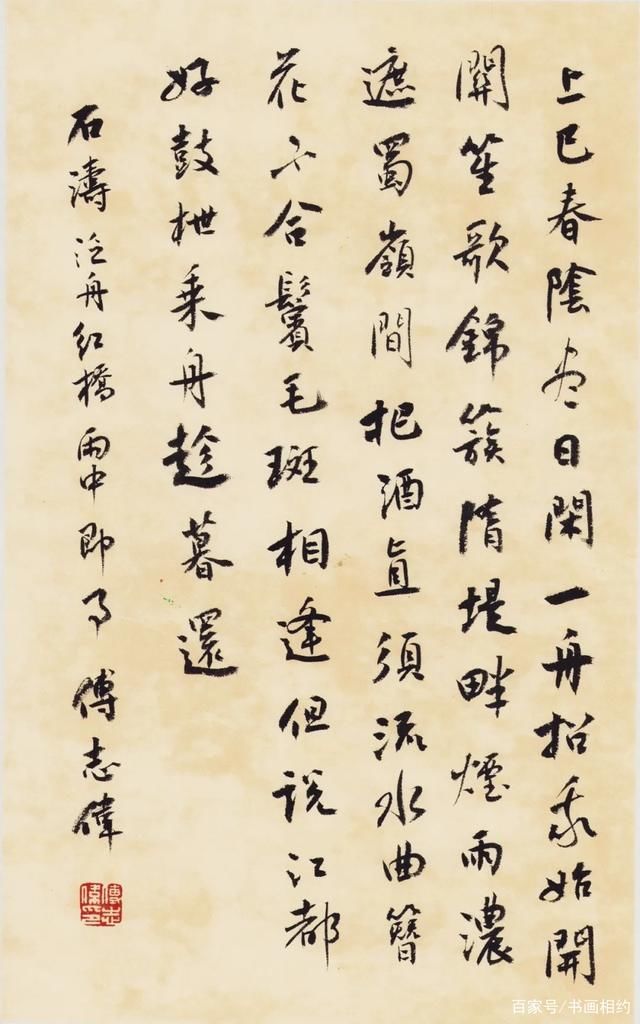 上巳春陰盡日閑一舟招我始開
關笙歌錦簇隋堤畔煙雨濃
遮蜀嶺間把酒直須流水曲簪
花不合鬢毛斑相逢但説江都
好鼓枻乘舟趁暮還
石濤泛舟紅橋雨中即事 傅志偉
傅志偉印
百家号/书画相约